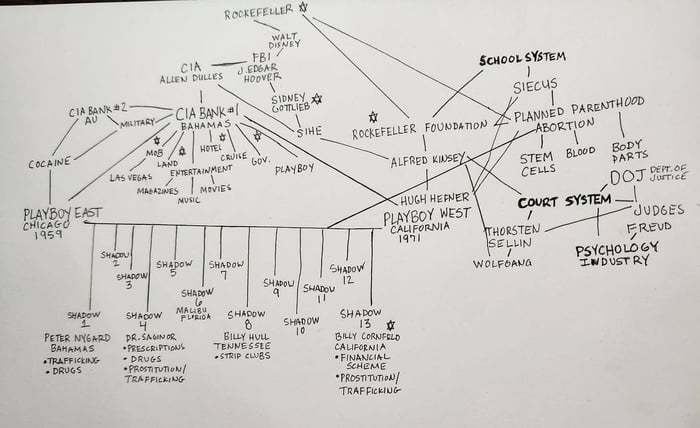 ROCKEFELLER
WALT
DISNEY
FBI
J. EDGAR
HOOVER
CIA
ALLEN DULLES
SIDNEY
GOTTLIEB
SCHOOL SYSTEM
SIECUS
CIA BANK #2
AU
MILITARY
CIA BANK #1
BAHAMAS
SIHE
ROCKEFELLER FOUNDATION
PLANNED PARENTHOOD
ABORTION
STEM
CELLS
BLOOD
BODY
PARTS
COCAINE
MOB
LAS VEGAS
LAND
HOTEL
ENTERTAINMENT
MAGAZINES
MUSIC
MOVIES
CRUISE
GOV.
PLAYBOY
ALFRED KINSEY
DOJ DEPT. OF
JUSTICE
PLAYBOY EAST
CHICAGO
1959
HUGH HEFNER
PLAYBOY WEST
CALIFORNIA
1971
COURT SYSTEM
JUDGES
THORSTEN
SELLIN
WOLFGANG
FREUD
PSYCHOLOGY
INDUSTRY
SHADOW
1
PETER NYGARD
BAHAMAS
•TRAFFICKING
•DRUGS
SHADOW
2
SHADOW
3
SHADOW
4
DR. SAGINOR
•PRESCRIPTIONS
•DRUGS
•PROSTITUTION/
TRAFFICKING
SHADOW
5
SHADOW
6
MALIBU
FLORIDA
SHADOW
7
SHADOW
8
BILLY HULL
TENNESSEE
•STRIP CLUBS
SHADOW
9
SHADOW
10
SHADOW
11
SHADOW
12
SHADOW
13
BILLY CORNFELD
CALIFORNIA
•FINANCIAL
SCHEME
•PROSTITUTION/
TRAFFICKING